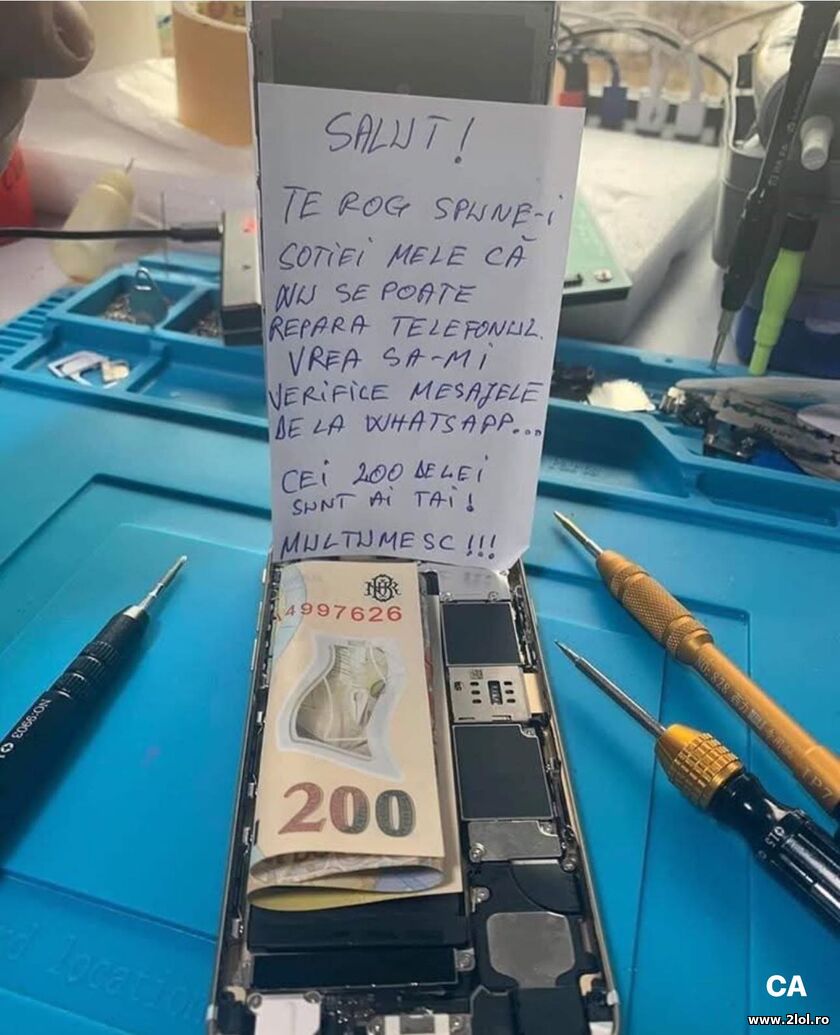 SALUT!
TE ROG SPUNE-i
SOTIEI MELE CĂ
NU SE POATE
REPARA TELEFONUL.
VREA SA-Mi
VERIFICE MESAJELE
DE LA WHATSAPP...
CEi 200 DE LEI
SUNT Ai TAi!
MULTUMESC!!!
4997626
200
NO:9903
CA
www.2lol.ro